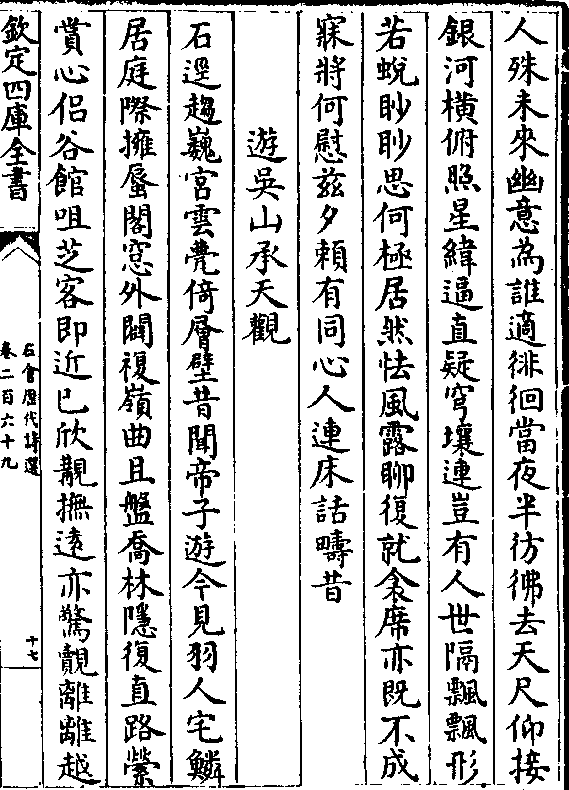 人殊未來幽意為誰適徘徊當夜半彷彿去天尺仰接
銀河橫俯照星緯逼直疑穹壤連豈有人世隔飄飄形
若蛻眇眇思何極居然怯風露聊復就衾席亦既不成
寐將何慰茲夕賴有同心人連床話疇昔
遊吳山承天觀
石逕趨巍宮雲甍倚層壁昔聞帝子遊今見羽人宅鱗
居庭際擁蜃閣窓外闢複嶺曲且盤喬林隱復直路縈
賞心侣谷館咀芝客即近已欣覿撫遠亦驚覿離離越
欽定四庫全書
石倉歷代詩選
卷二百六十九
十七